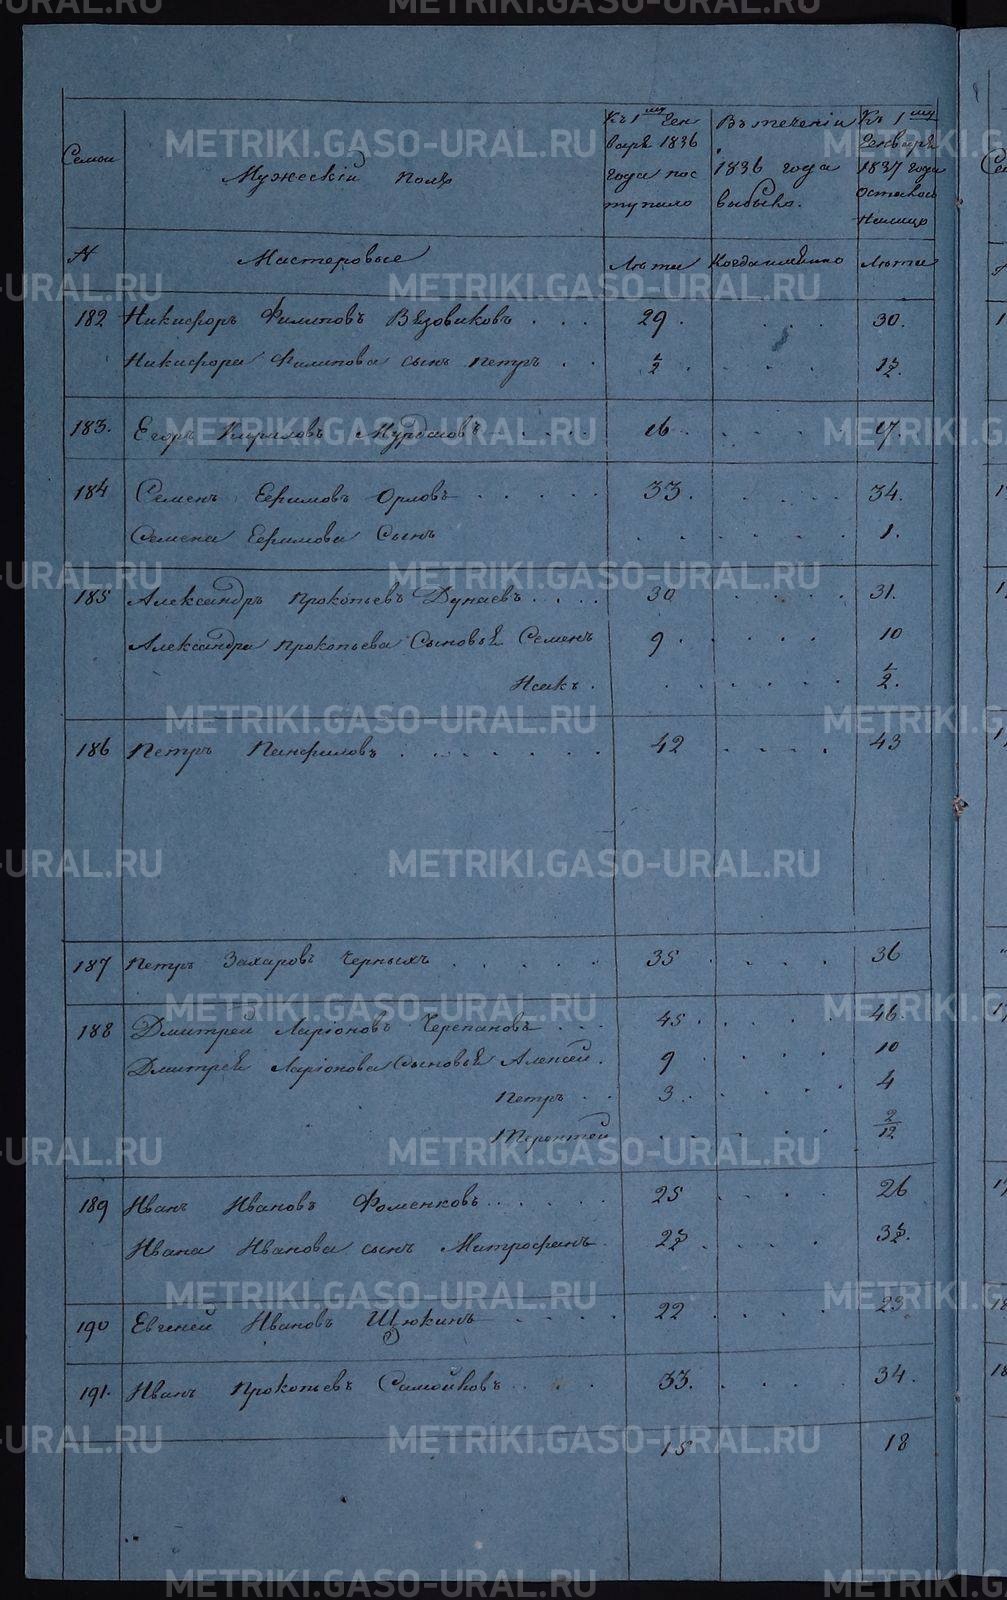 Семьи
Мужескій полъ
Къ 1му Ген
варѣ 1836
года пос
тупило
Въ теченіи
1836 года
выбыло.
Къ 1му
Генварѣ
1837 года
осталось
налицо
№ Мастеровые Лѣта Когда именно Лѣта
182 Никифоръ Филиповъ Вязовиковъ . . . 29 . . . . 30.
Никифора Филипова сынъ Петръ . . 1/2 . . . . 1 1/2.
183. Егоръ Кириловъ . . . . 16 . . . . 17.
184 Семенъ Ефимовъ Орловъ . . . . . 33. . . . . 34.
Семена Ефимова Сынъ . . . . . . 1.
185 Александръ Прокопьевъ Дунаевъ . . . . 30 . . . . . 31.
Александра Прокопьева Сыновья Семенъ 9 . . . . . 10
Исакъ . . . . . . . . 1/2.
186 Петръ Панфиловъ . . . . . . . 42 . . . . 43
187 Петръ Захаровъ Черныхъ . . . . . 35 . . . . 36
188 Дмитрей Ларіоновъ Черепановъ . . . 45 . . . . . 46.
Дмитрея Ларіонова Сыновья Алексей . 9 . . . . . 10
Петръ . . 3 . . . . . . 4
Терентей . . . . . . 2/12
189 Иванъ Ивановъ Фоменковъ . . . . 25 . . . . 26
Ивана Иванова сынъ Митрофанъ . 2 1/2 . . . . . 3 1/2.
190 Евгеней Ивановъ Щюкинъ . . . . . 22 . . . . . 23
191. Иванъ Прокопьевъ Самойловъ . . . . 33. . . . . 34.
15 18
METRIKI.GASO-URAL.RU